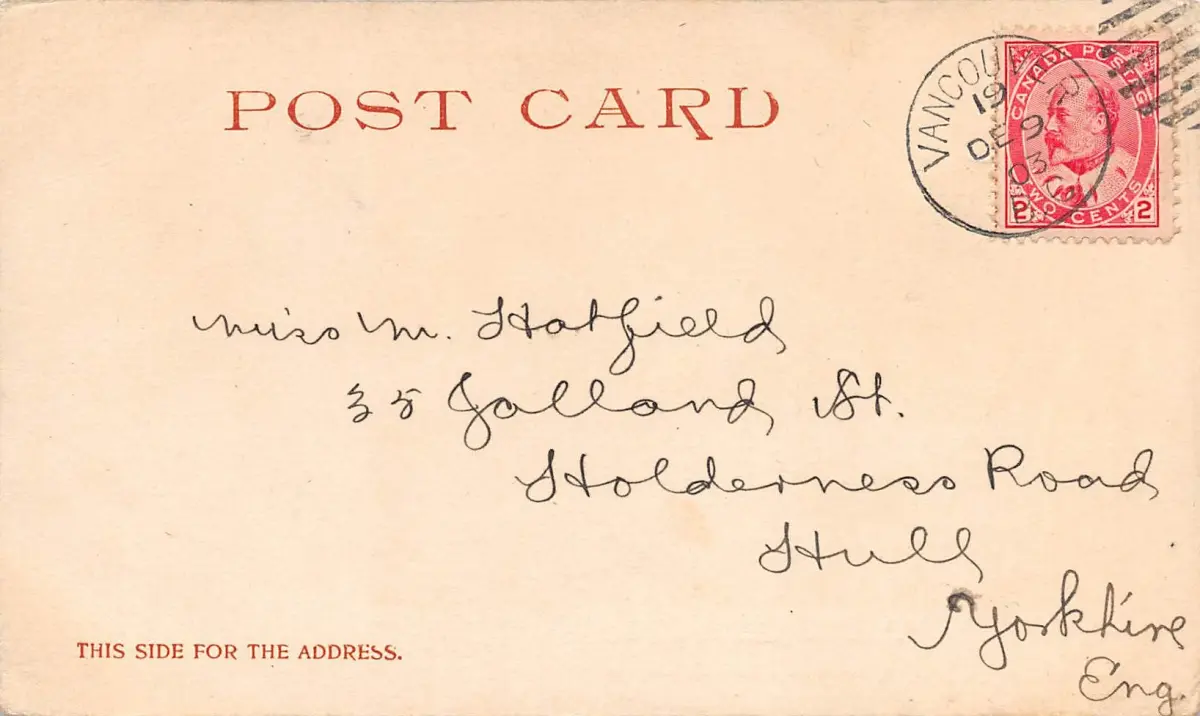 POST CARD
VANCOUVER
19
DE 9
03
CANADA POSTAGE
2 TWO CENTS 2
Miss M. Hatfield
35 Jalland St.
Holderness Road
Hull
Yorkhire
Eng.
THIS SIDE FOR THE ADDRESS.